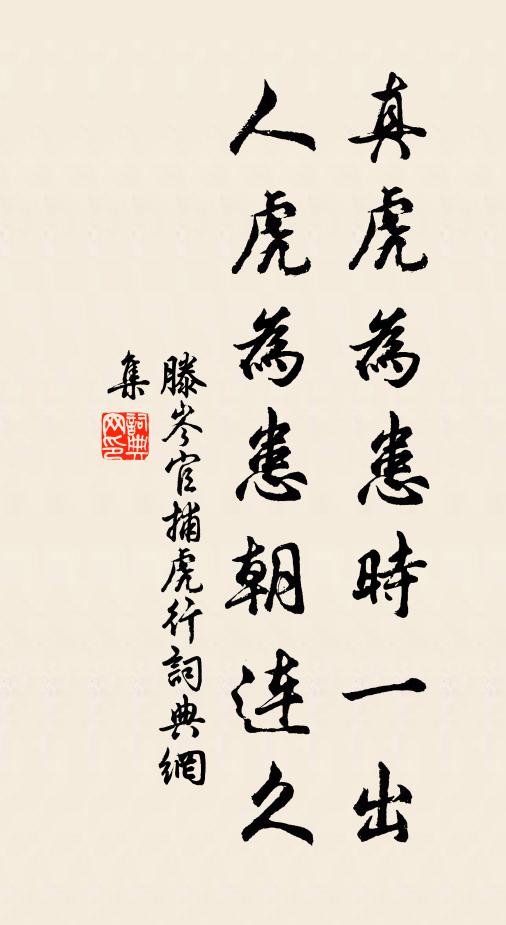 真虎為患時一出
人虎為患朝連久
滕岑官捕虎行詞典網
集
詞典
网印